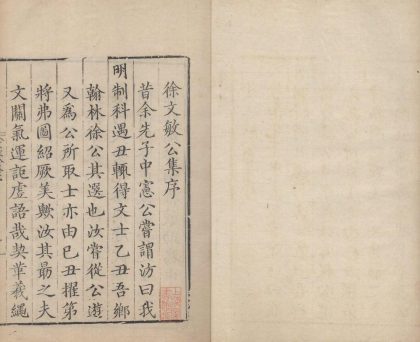 徐文敏公集序
昔余先子中憲公嘗謂汸曰我
明制科遇丑輒得文士乙丑吾鄉
翰林徐公其選也汝嘗從公遊
又爲公所取士亦由已丑擢第
將弗圖紹厥美歟汝其最之夫
文關氣運詎虛語哉契華羲繩